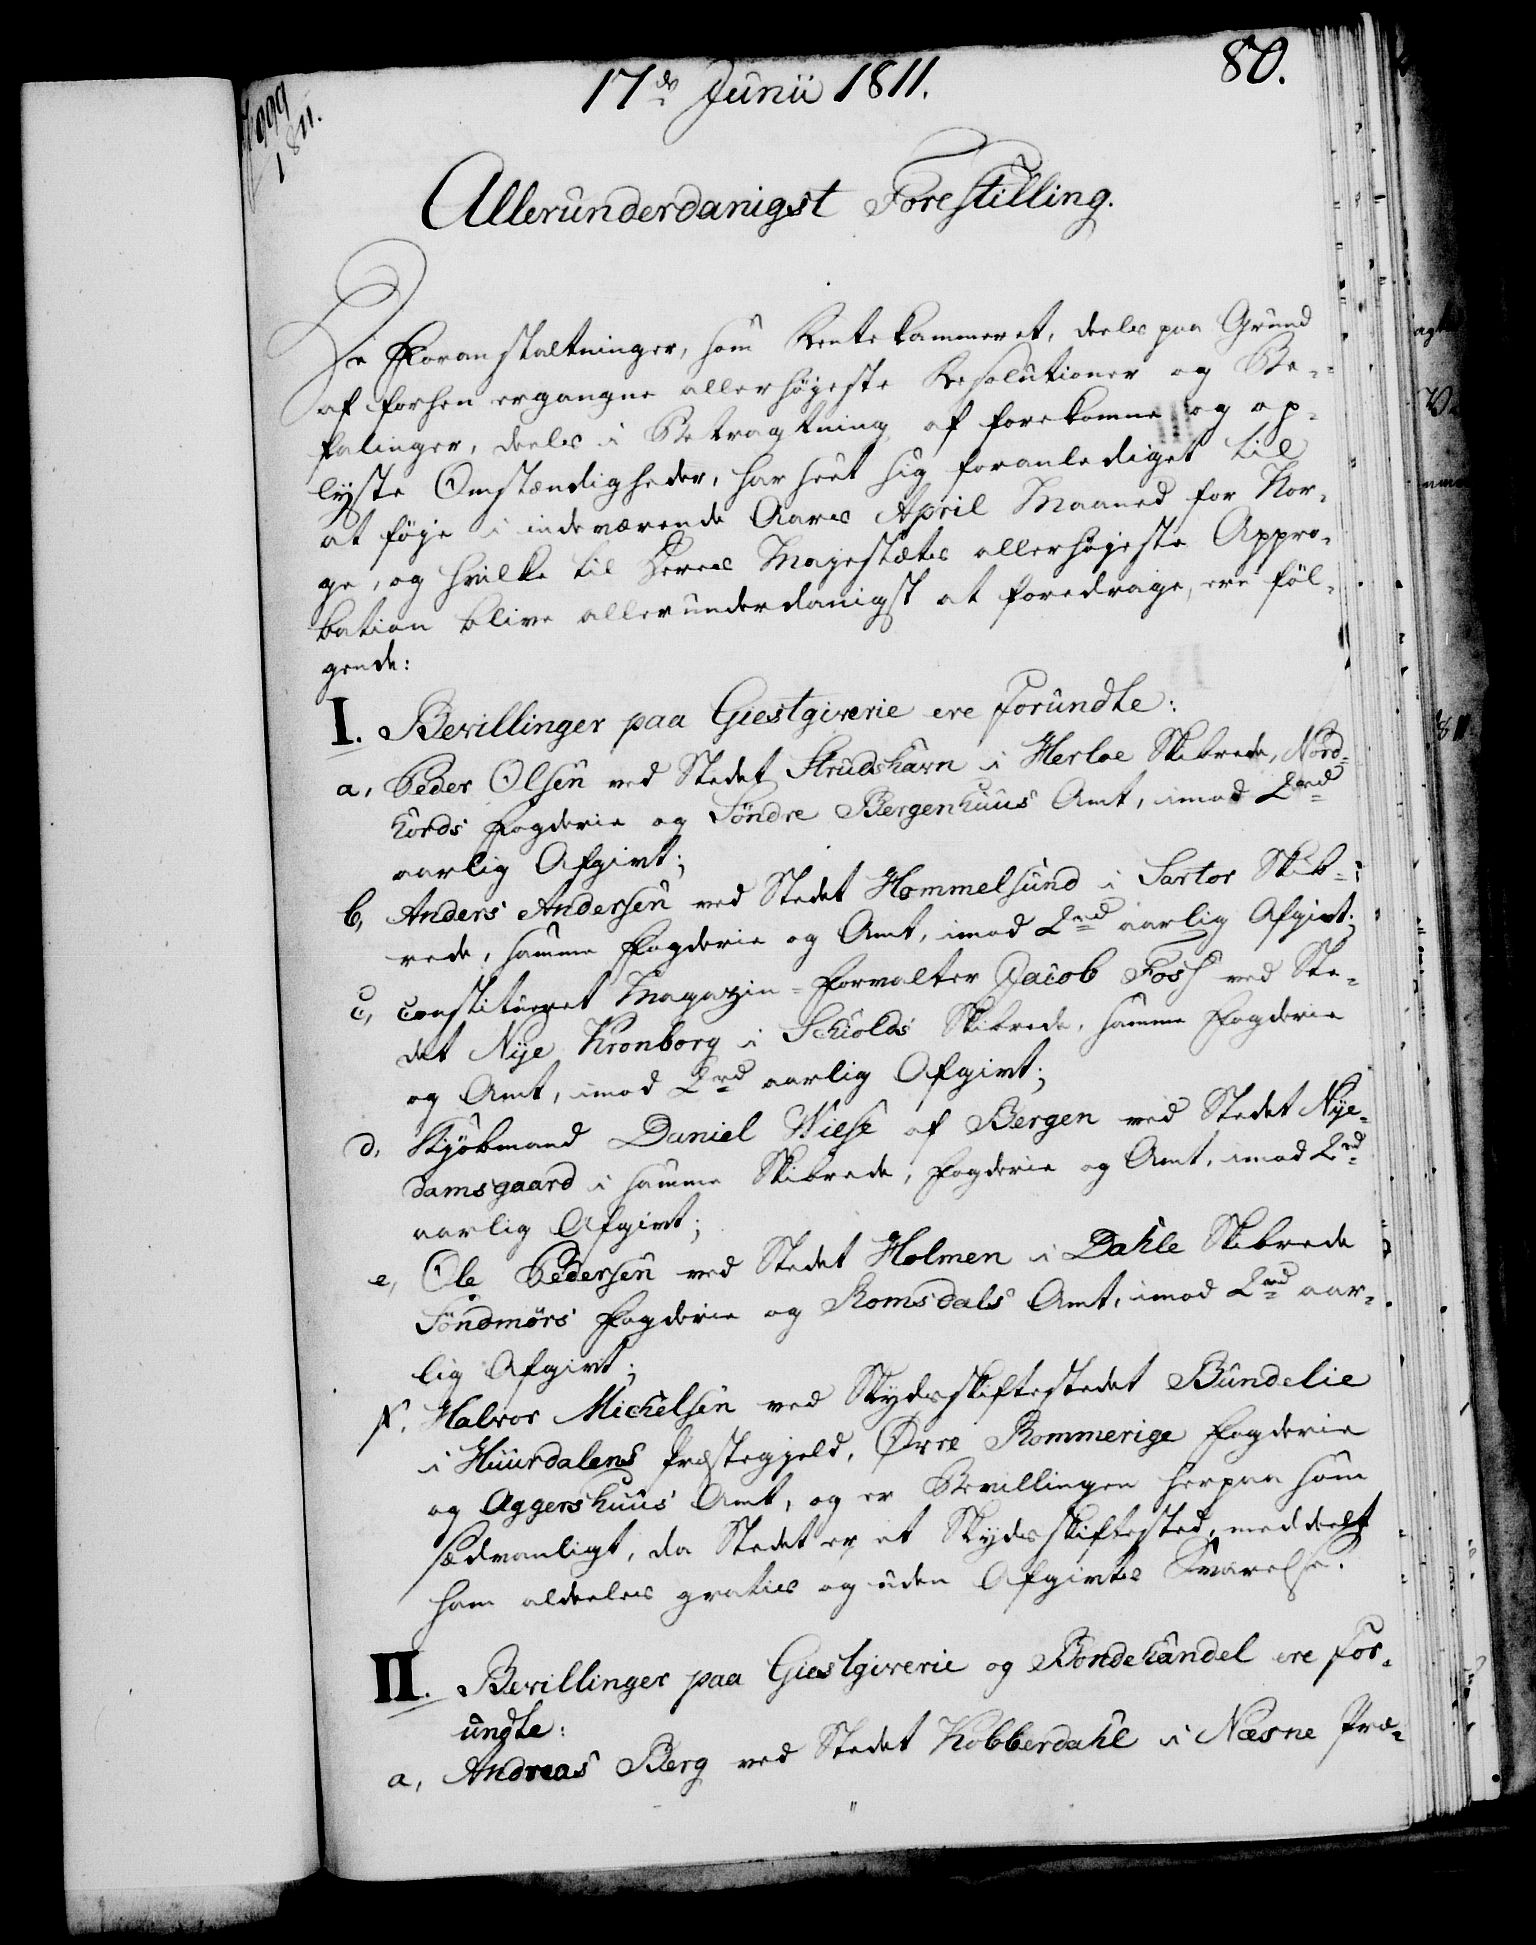 17de Junii 1811.
80.
999
1811.
Allerunderdanigst Forestilling.
De Foranstaltninger, som Rentekammeret, deels paa Grund
af forhen ergangne allerhöjeste Resolutioner og Be-
falinger, deels i Betragtning af forekomne og op-
lyste Omstændigheder, har seet sig foranlediget til
at föje i indeværende Aars April Maaned for Nor-
ge, og hvilke til Deres Majestæts allerhöjeste Appro-
bation blive allerunderdanigst at foredrage, ere föl-
gende:
I. Bevillinger paa Giestgiverie ere forundte:
a, Peder Olsen ved Stedet Strudshavn i Herloe Skibrede, Nord-
hords Fogderie og Söndre Bergenhuus Amt, imod 2rd
aarlig Afgivt;
b, Anders Andersen ved Stedet Hommelsund i Sartor Skib-
rede, samme Fogderie og Amt, imod 2rd aarlig Afgivt;
c, constitueret Magazin-Forvalter Jacob Foss ved Ste-
det Nye Kronborg i Schiolds Skibrede, samme Fogderie
og Amt, imod 2rd aarlig Afgivt;
d, Kjöbmand Daniel Wiese af Bergen ved Stedet Nye-
damsgaard i samme Skibrede, Fogderie og Amt, imod 2rd
aarlig Afgivt;
e, Ole Pedersen ved Stedet Holmen i Dahle Skibrede
Söndmörs Fogderie og Romsdals Amt, imod 2rd aar-
lig Afgivt;
f. Halvor Michelsen ved Skydsskiftestedet Bundelie
i Huurdalens Præstegjeld, Øvre Rommerige Fogderie
og Aggershuus Amt, og er Bevillingen herpaa som
sædvanligt, da Stedet er et Skydsskiftested, meddeelt
ham aldeeles gratis og uden Afgivts Svarelse.
II. Bevillinger paa Giestgiverie og Bondehandel ere for-
undte:
a, Andreas Berg ved Stedet Kobberdahl i Næsne Præ-